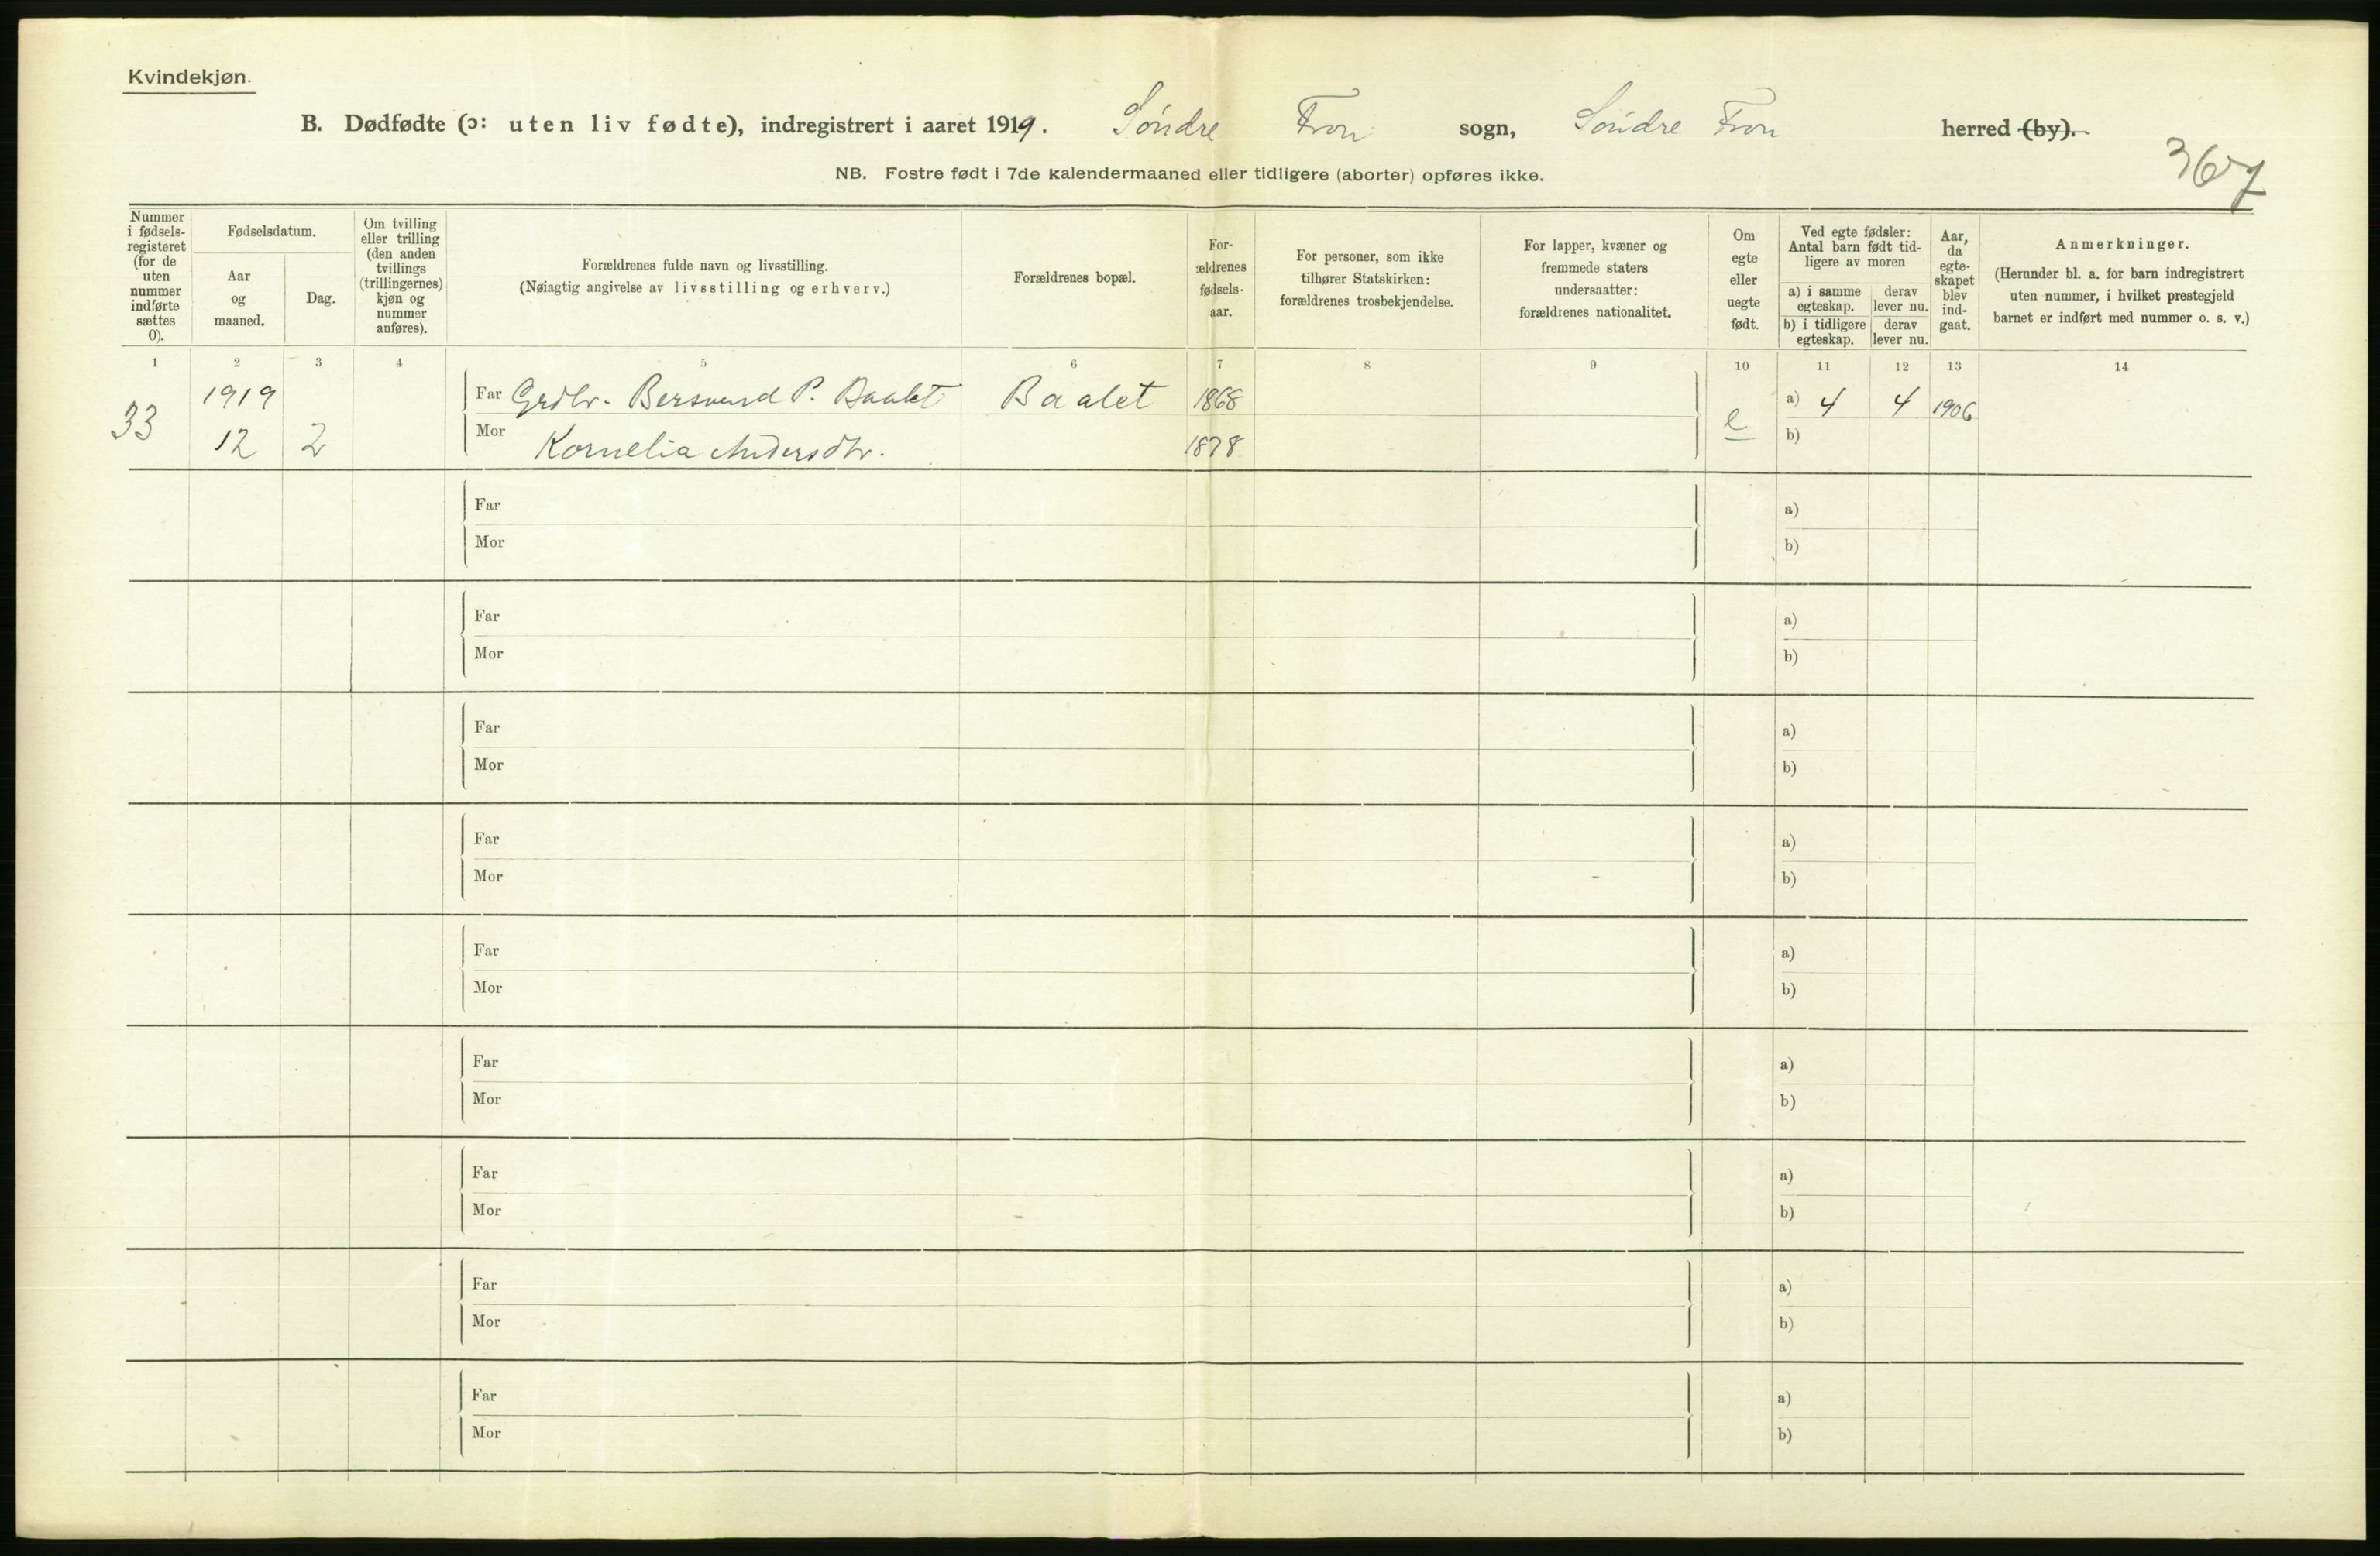 Kvindekjøn.
B. Dødfødte (ɔ: uten liv fødte), indregistrert i aaret 1919. Söndre Fron sogn, Söndre Fron herred (by).
NB. Fostre født i 7de kalendermaaned eller tidligere (aborter) opføres ikke.
367
Nummer i fødsels-registeret (for de uten nummer indførte sættes 0).
Fødselsdatum.
Aar og maaned.
Dag.
Om tvilling eller trilling (den anden tvillings (trillingernes) kjøn og nummer anføres).
Forældrenes fulde navn og livsstilling.
(Nøiagtig angivelse av livsstilling og erhverv.)
Forældrenes bopæl.
For-ældrenes fødsels-aar.
For personer, som ikke tilhører Statskirken: forældrenes trosbekjendelse.
For lapper, kvæner og fremmede staters undersaatter: forældrenes nationalitet.
Om egte eller uegte født.
Ved egte fødsler: Antal barn født tid-ligere av moren
a) i samme egteskap.
derav lever nu.
b) i tidligere egteskap.
derav lever nu.
Aar, da egte-skapet blev ind-gaat.
Anmerkninger.
(Herunder bl. a. for barn indregistrert uten nummer, i hvilket prestegjeld barnet er indført med nummer o. s. v.)
1 2 3 4 5 6 7 8 9 10 11 12 13 14
33 1919 Far Grdbr. Bersvend P. Baalet Baalet 1868 e a) 4 4 1906
12 2 Mor Kornelia Andersdtr. 1878 b)
Far a)
Mor b)
Far a)
Mor b)
Far a)
Mor b)
Far a)
Mor b)
Far a)
Mor b)
Far a)
Mor b)
Far a)
Mor b)
Far a)
Mor b)
Far a)
Mor b)